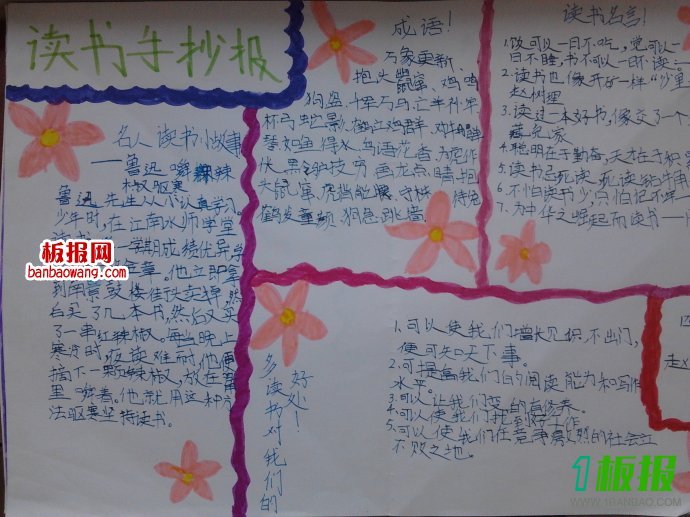 读书手抄报
名人读书小故事
——鲁迅嚼辣
椒驱寒
鲁迅先生从小认真学习。
少年时，在江南水师学堂
一学期成绩优异学
章。他立即拿
到南京鼓楼街头卖掉，然
后买了几本书，然后又买
了一串红辣椒。每当晚上
寒冷时，夜读难耐，他便
摘下一颗辣椒，放在嘴
里嚼着。他就用这种方
法驱寒坚持读书。
板报网
banbaowang.com
成语！
万象更新、
抱头鼠窜、鸡鸣
狗盗、千军万马、亡羊补牢
杯弓蛇影、鹤立鸡群、对牛弹
琴、如鱼得水、鸟语花香、为虎作
伥、黑驴技穷、画龙点睛、抱
头鼠窜、虎背熊腰、守株待兔
鹤发童颜、狗急跳墙、
读书名言！
1.饭可以一日不吃，觉可以一
日不睡，书不可以一日不读
2.读书也像开矿一样“沙里
赵树理
3.读过一本好书，像交了一个
臧克家
4.聪明在于勤奋，天才在于积
5.读书忌死读，死读钻牛角
6.不怕读书少，只怕记不牢
7.为中华之崛起而读书
多读书对我们的
好处！
1.可以使我们增长见识，不出门，
便可知天下事。
2.可提高我们的阅读能力和写作
水平。
3.可以让我们变的有修养。
4.可以使我们找到好工作
5.可以使我们在竞争激烈的社会立
不败之地。
赵
1板报
WWW.1BANBAO.COM